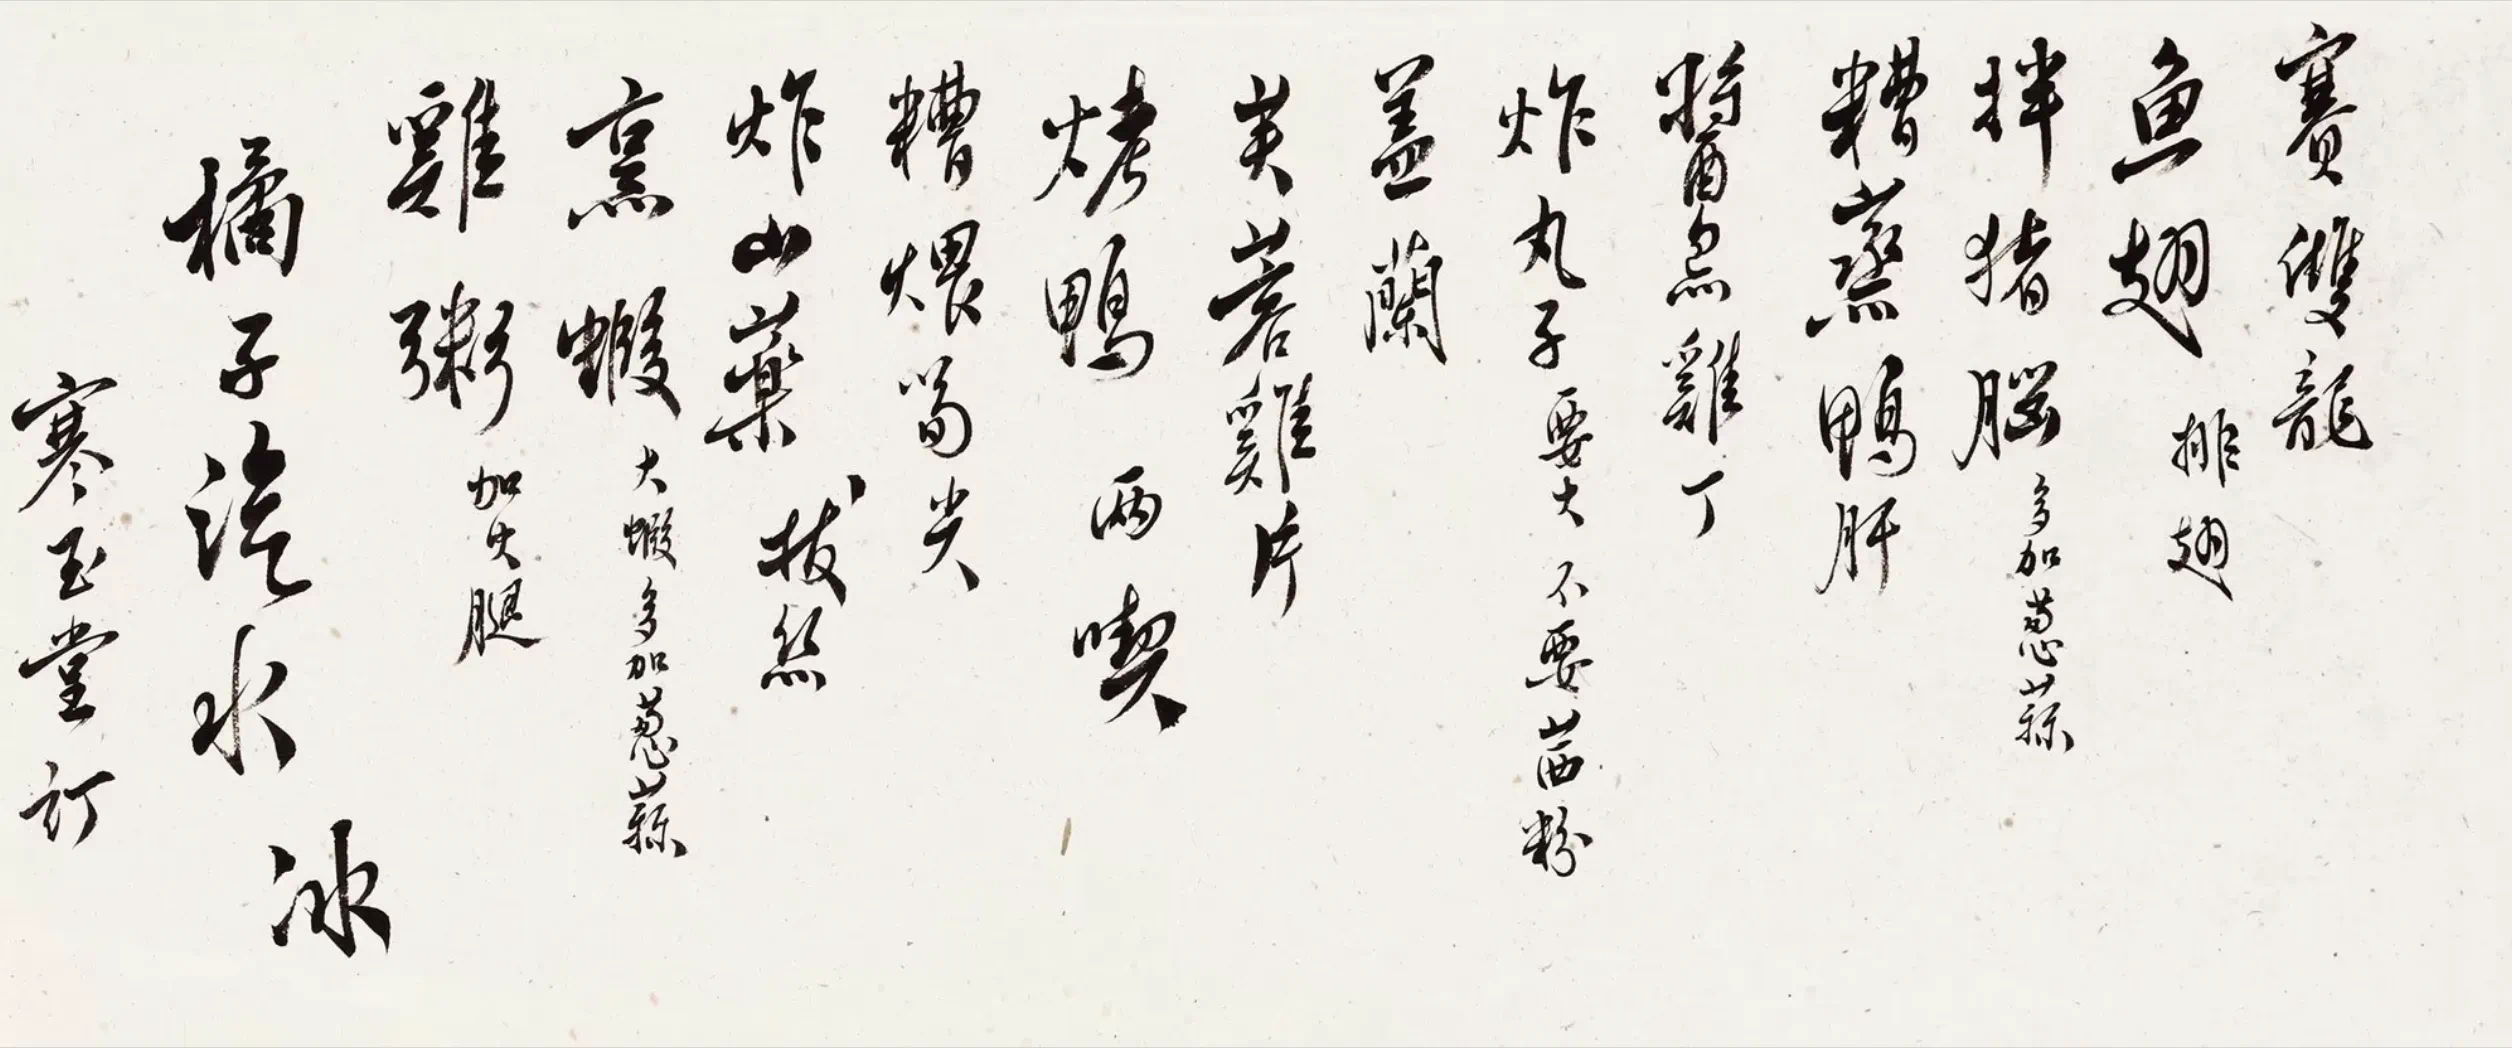 賽雙龍
魚翅 排翅
拌猪腦 多加蔥蒜
糟蒸鴨肝
醬爆雞丁
炸丸子 要大 不要茜粉
蓋蘭
芙蓉雞片
烤鴨 兩喫
糟煨筍尖
炸山藥 拔絲
烹蝦 大蝦多加蔥蒜
雞粥 加火腿
橘子汽水 冰
寒玉堂訂